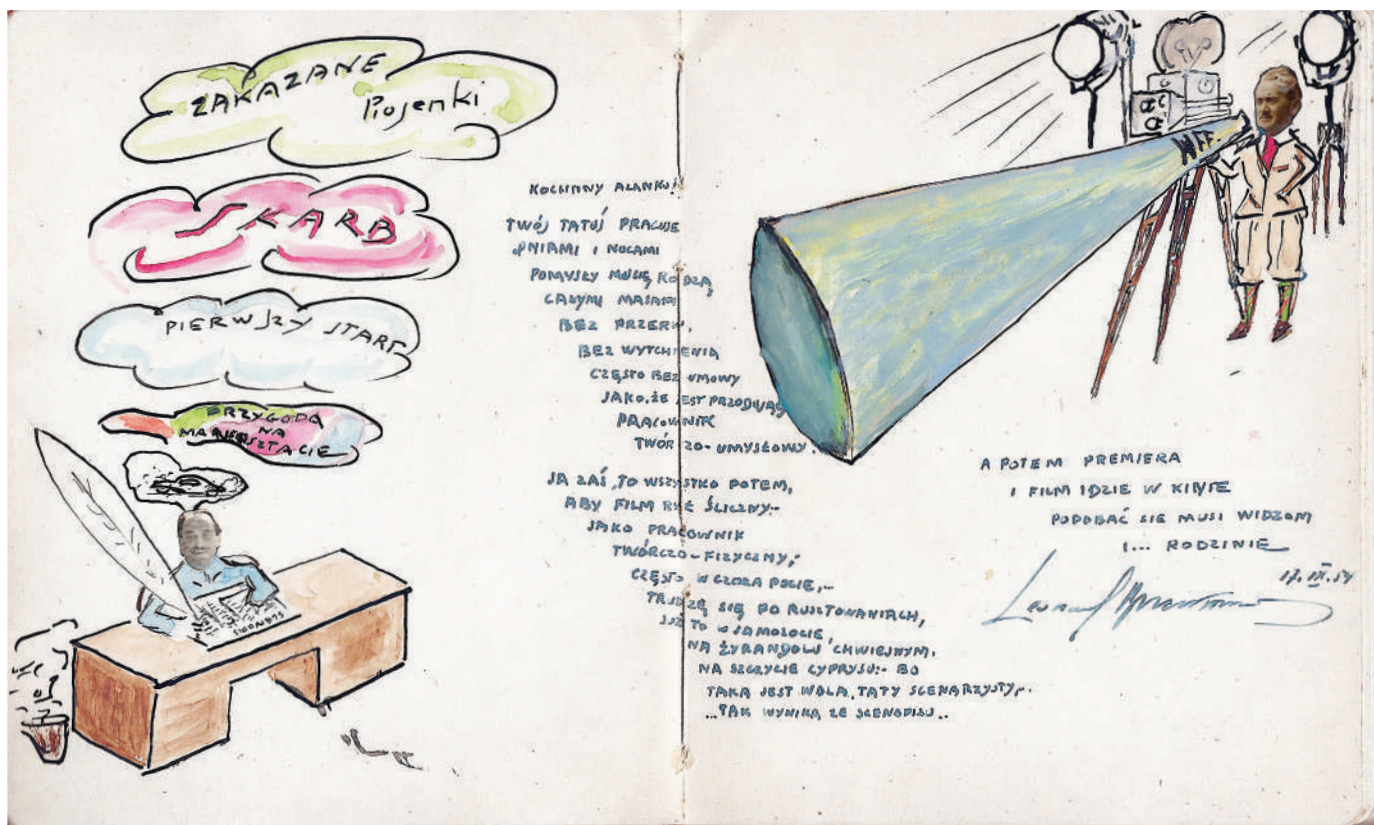 ZAKAZANE
Piosenki
SKARB
PIERWSZY START
PRZYGODA
NA
MARIENSZTACIE
KOCHANY ALANKU!
TWÓJ TATUŚ PRACUJE
DNIAMI I NOCAMI
POMYSŁY MUSZĄ RODZĄ,
CAŁYMI MASAMI
BEZ PRZERW,
BEZ WYTCHNIENIA
CZĘSTO BEZ UMOWY
JAKO, ŻE JEST PRZODUJĄCY
PRACOWNIK
TWÓRCZO-UMYSŁOWY.
JA ZAŚ, TO WSZYSTKO POTEM,
ABY FILM BYŁ ŚLICZNY:-
JAKO PRACOWNIK
TWÓRCZO-FIZYCZNY;
CZĘSTO W CZOŁA POCIE,-
TRUDZĘ SIĘ PO RUSZTOWANIACH,
JUŻ TO W SAMOLOCIE,
NA ŻYRANDOLU CHWIEJNYM,
NA SZCZYCIE CYPRYSU:- BO
TAKA JEST WOLA, TATY SCENARZYSTY,-
...TAK WYNIKA ZE SCENOPISU..
WFF.
A POTEM PREMIERA
I FILM IDZIE W KINIE
PODOBAĆ SIĘ MUSI WIDZOM
I... RODZINIE
17. IX. 54